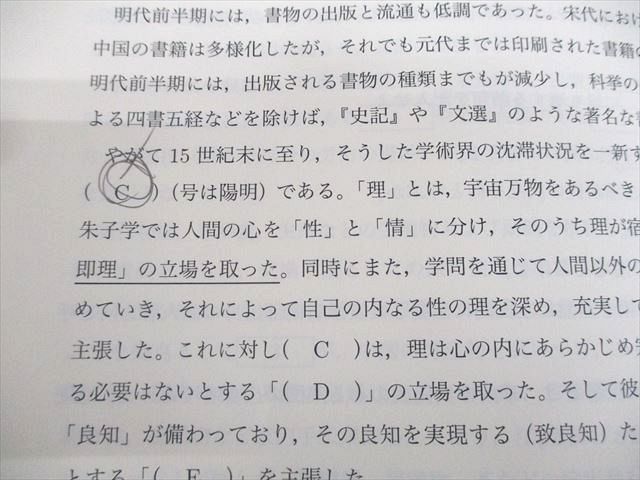 明代前半期には，書物の出版と流通も低調であった。宋代におけ
中国の書籍は多様化したが，それでも元代までは印刷された書籍の
明代前半期には，出版される書物の種類までもが減少し，科挙の
よる四書五経などを除けば，『史記』や『文選』のような著名な
やがて 15 世紀末に至り，そうした学術界の沈滞状況を一新す
( C ) (号は陽明) である。「理」とは，宇宙万物をあるべき
朱子学では人間の心を「性」と「情」に分け，そのうち理が宿
即理」の立場を取った。同時にまた，学問を通じて人間以外の
めていき，それによって自己の内なる性の理を深め，充実して
主張した。これに対し( C )は，理は心の内にあらかじめ
る必要はないとする「( D )」の立場を取った。そして彼
「良知」が備わっており，その良知を実現する（致良知）た
とする「( E )」を主張した